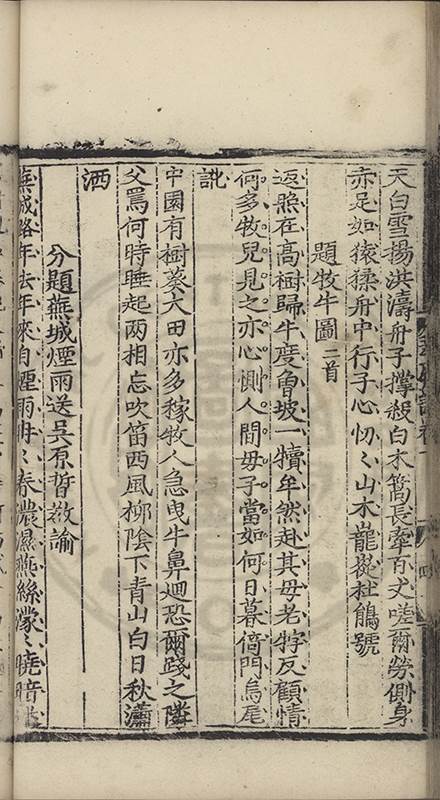 天白雪揚洪濤舟子撐殺白木篙長牽百丈嗟爾勞側身
亦足如猿猱舟中行子心忉〻山木巃嵸杜鵑號
題牧牛圖二首
返照在高樹歸牛度魯坡一犢牟然赴其母老牸反顧情
何多牧兒見之亦心惻人間母子當如何日暮倚門烏尾
訛
中園有樹葵大田亦多稼牧人急曳牛鼻迴恐爾踐之隣
父罵何時睡起兩相忘吹笛西風柳陰下青山白日秋瀟
洒
分題蕪城煙雨送吳原晢敎諭
蕪城路年去年來自煙雨冉〻春濃濕燕絲濛〻曉暗